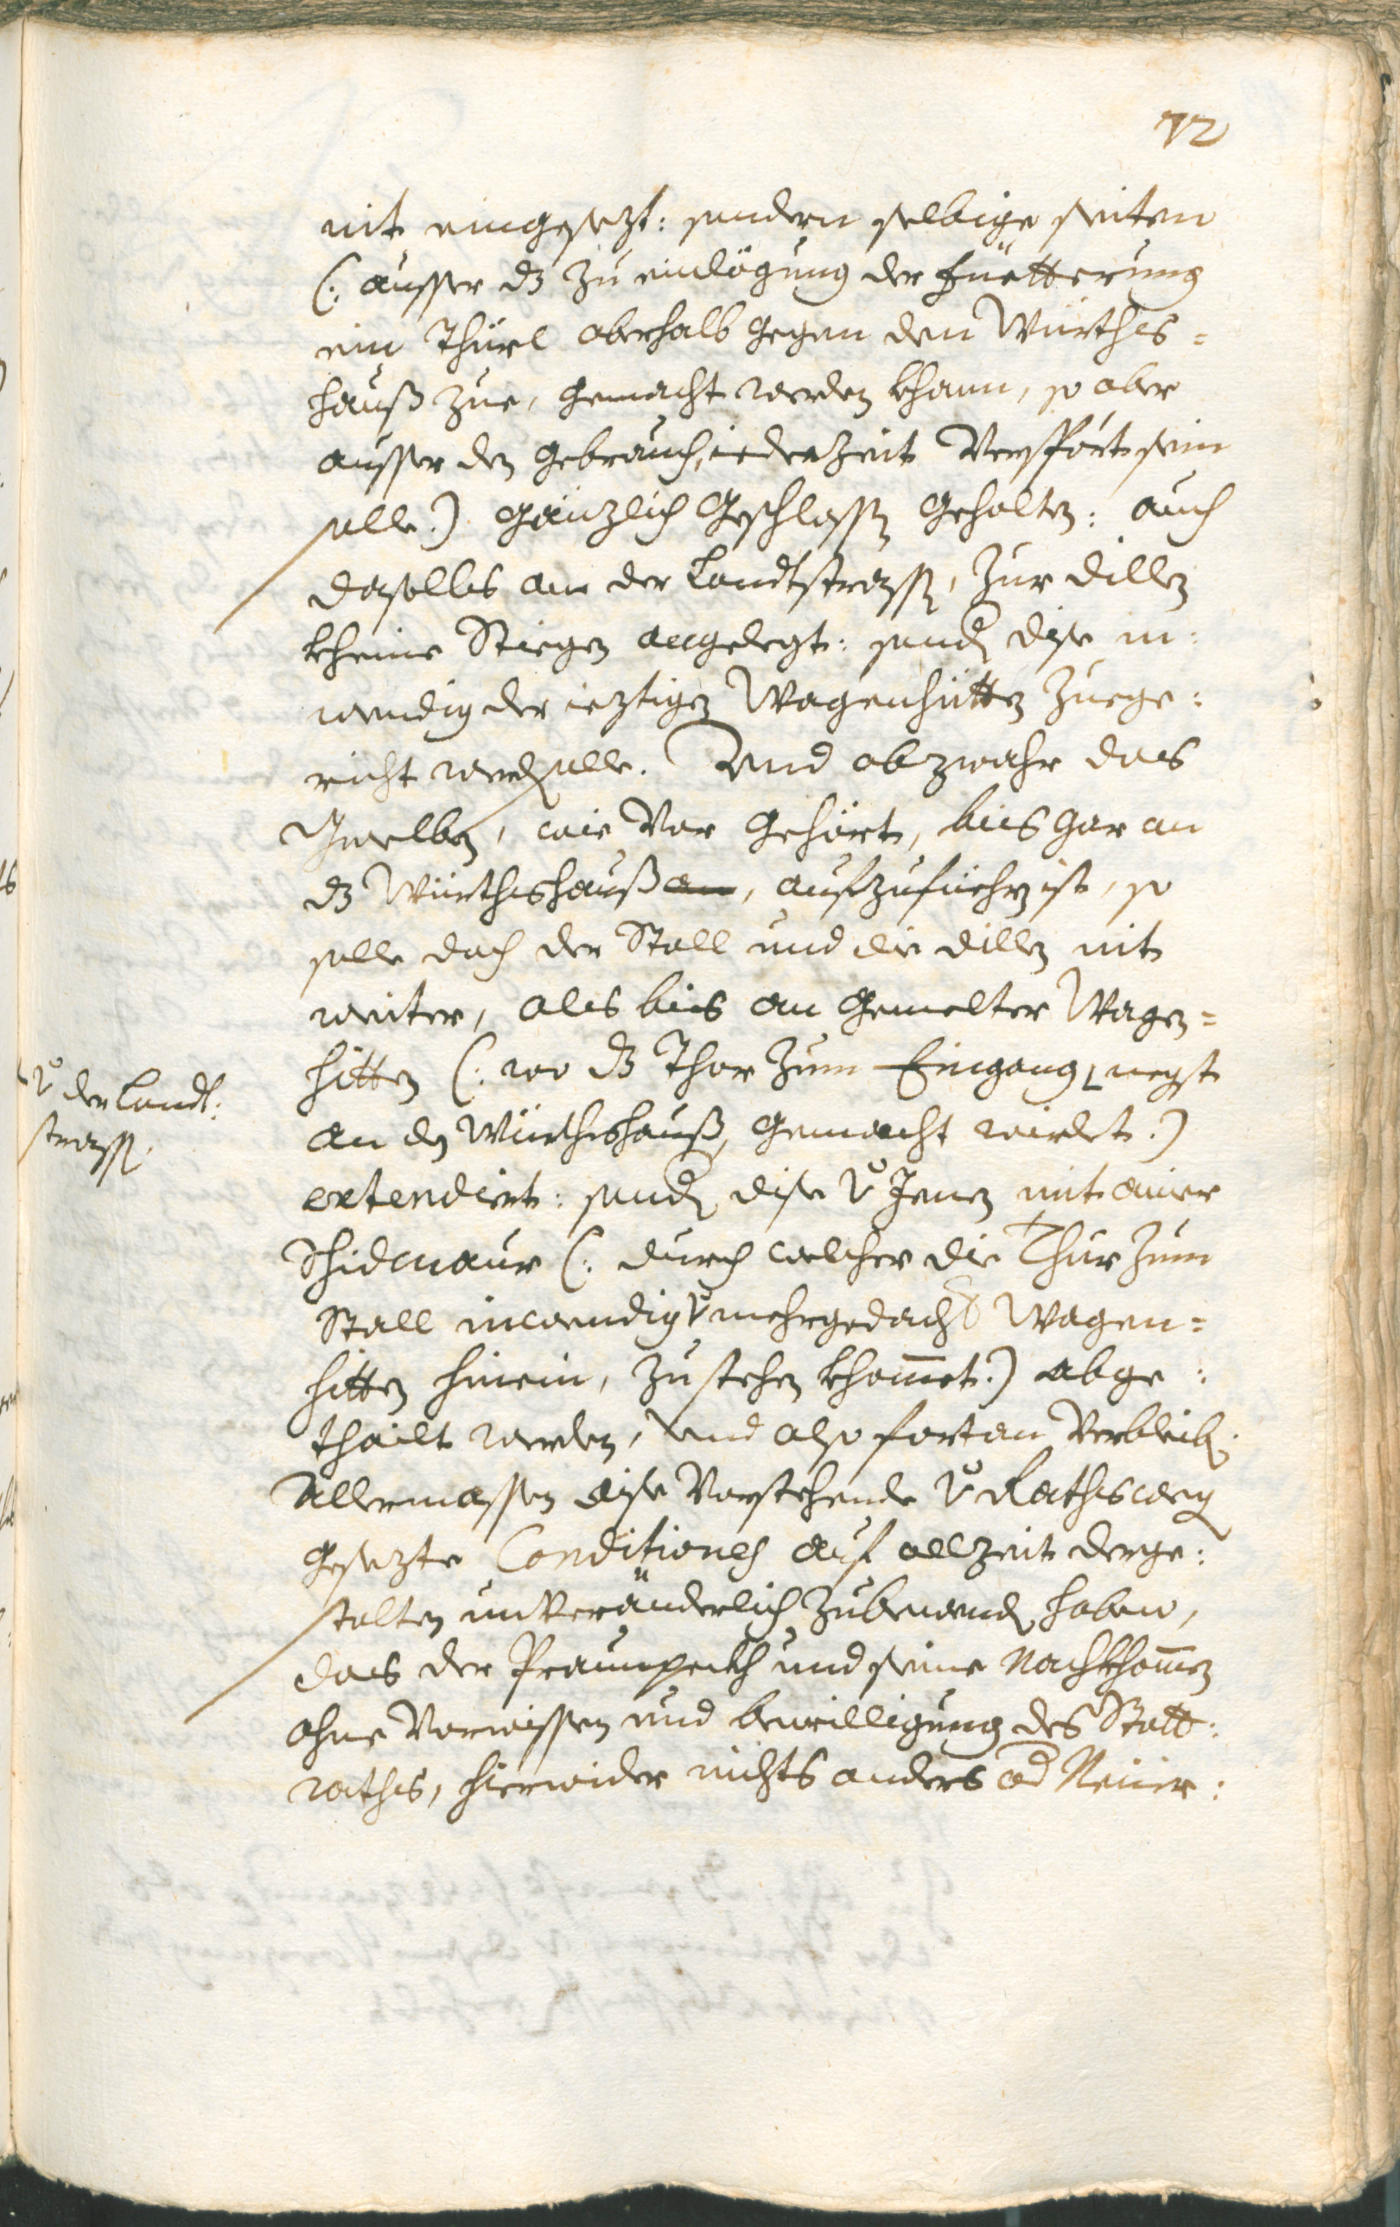 72
nit eingesezt: sondern selbige seiten
(: ausser dz zu einlögung der Fuetterung
ein Thürl oberhalb gegen dem Würths=
hauß zue, gemacht werden khann, so aber
ausser den gebrauch, iederzeit Verspört sein
solle :) gänzlich Geschlossen gehalten: auch
daselbs an der Landtstrassen, zur dillen
kheine Stiegen angelegt: sondern dise in:
wendig der ieztigen Wagenhütten zuege:
richt werden solle. Und obzwahr das
Gwelben, wie vor gehört, bis gar an
dz Würthshauß an, aufzufüehren ist, so
solle doch der Stall und die dillen nit
weiter, als bis an gemelter Wagen=
hitten (: wo dz Thor zum Eingang negst
an den Würthshauß, gemacht wirdet :)
v der Landt:
strassen.
extendirt: sondern dise v Jenen mit ainer
Schidmaur (: durch welcher die Thür zum
Stall inwendig v mehrgedacht Wagen=
hitten hinein, zu stehen khommet :) abge:
thailt werden, und also fortan Verbleiben.
Allermassen dise Vorstehende v Rathswegen
gesezte Conditiones auf allzeit derge:
stalten unveränderlich zubewenden haben,
das der Praunpeckh und seine Nachkhommen
ohne Vorwissen und bewilligung des Statt:
raths, hierwider nichts anders od Neuer: